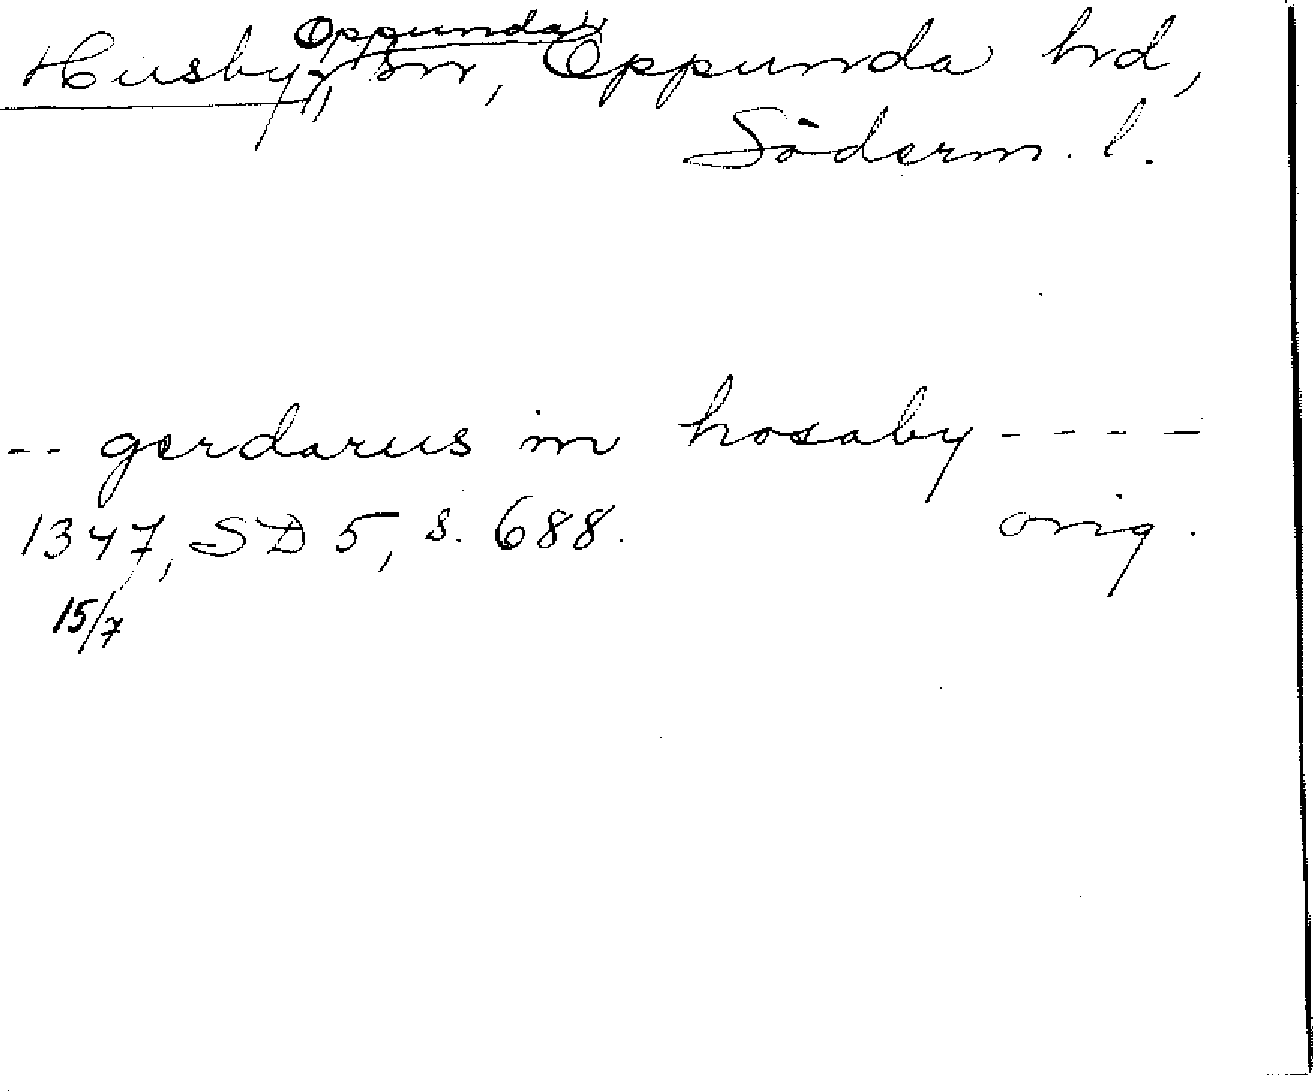 Husby-Oppunda sn, Oppunda hd,
Söderm. l.
-- gerdarus in hosaby ----
1347, SD 5, s. 688. orig.
15/7